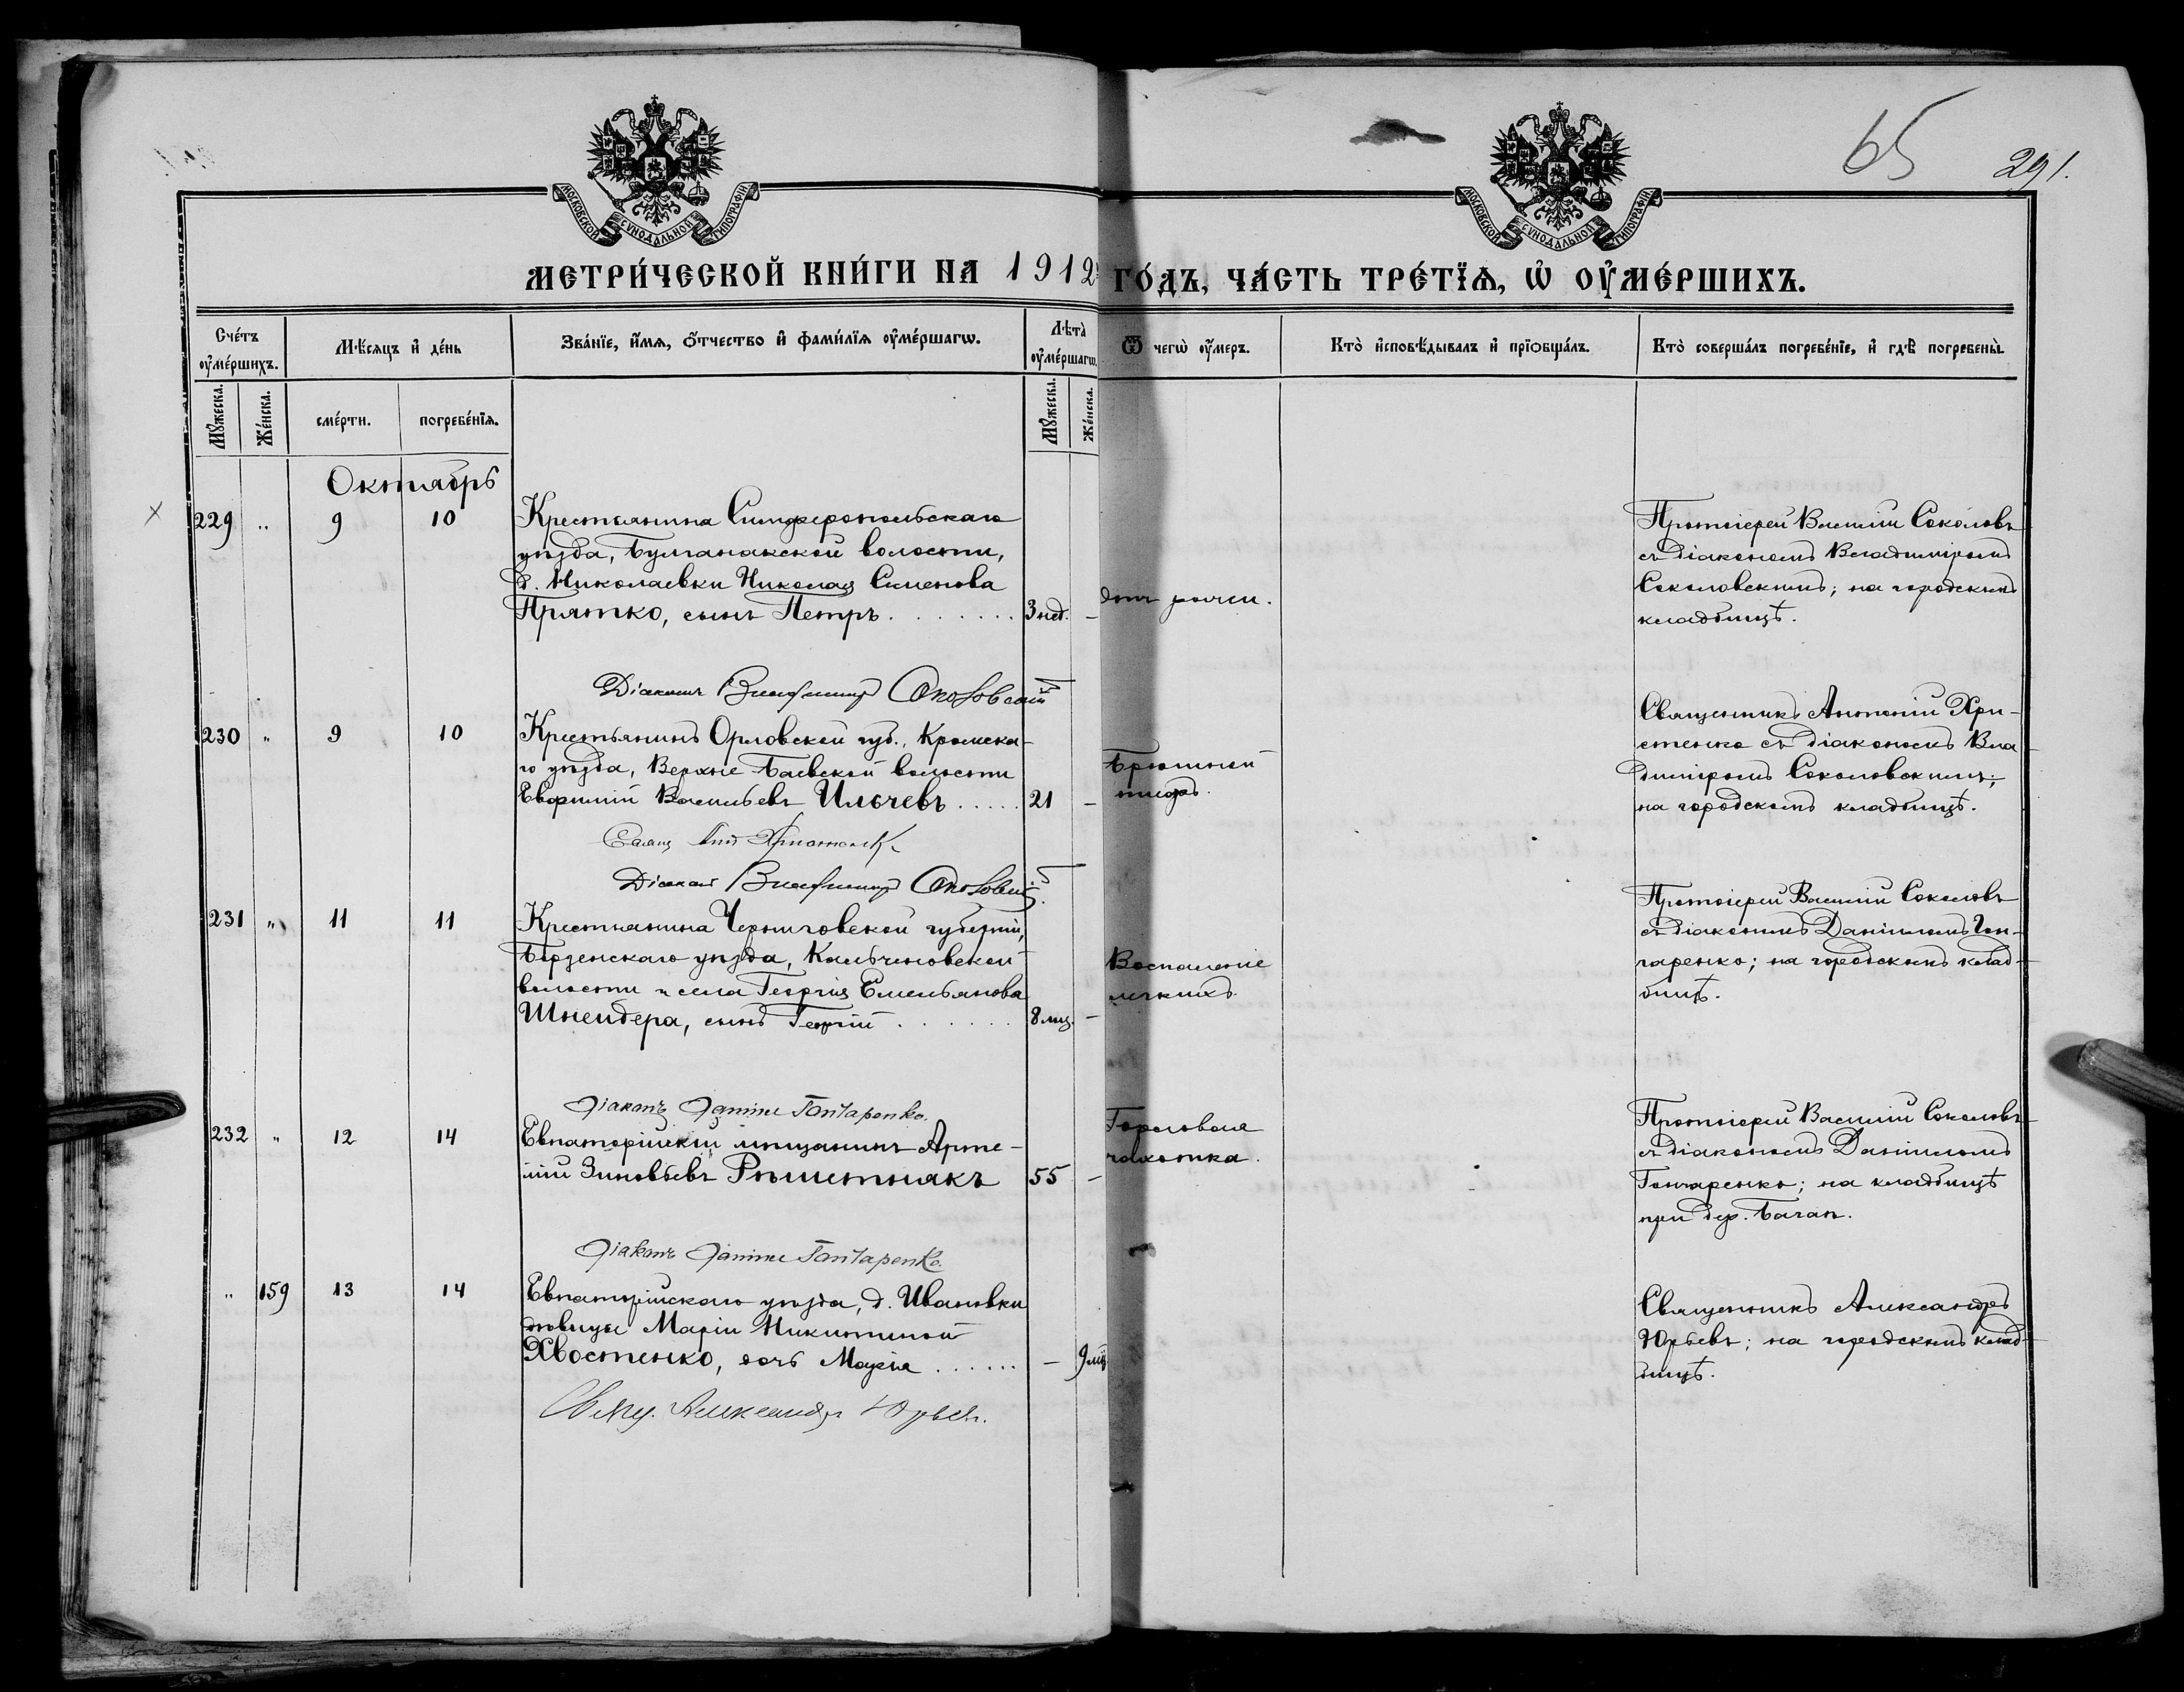 65
291.
МОСКОВСКОЙ СѴНОДАЛЬНОЙ ТИПОГРАФІИ
МОСКОВСКОЙ СѴНОДАЛЬНОЙ ТИПОГРАФІИ
МЕТРИ́ЧЕСКОЙ КНИ́ГИ НА 1912 ГО́ДЪ, ЧА́СТЬ ТРЕ́ТЇѦ, Ѡ҆ ОУ҆МЕ́РШИХЪ.
Сче́тъ оу҆ме́ршихъ.
Мѣ́сяцъ и҆ де́нь
Зва́нїе, и҆́мѧ, ѻ҆́тчество и҆ фами́лїѧ оу҆ме́ршагѡ.
Лѣта̀ оу҆ме́ршагѡ.
Ѿ чегѡ̀ оу҆́меръ.
Кто̀ и҆сповѣ́дывалъ и҆ прїѻбща́лъ.
Кто̀ соверша́лъ погребе́нїе, и҆ гдѣ̀ погребены̀.
Мꙋ́жеска.
Же́нска.
сме́рти.
погребе́нїѧ.
Мꙋ́жеска.
Же́нска.
Октябрь
229 " 9 10
Крестьянина Симферопольскаго
уѣзда, Булганакской волости,
д. Николаевки Николая Семенова
Прятко, сынъ Петръ . . . . . . . 3 нед. –
Протоіерей Василій Соколовъ
съ діакономъ Владиміромъ
Соколовскимъ; на городскомъ
кладбищѣ.
Діаконъ Владиміръ Соколовскій
230 " 9 10
Крестьянинъ Орловской губ., Кромска-
го уѣзда, Верхне-Баевской волости
Евфимій Васильевъ Ильчевъ ..... 21 –
Брюшной
тифъ.
Священникъ Антоній Хри-
стенко съ діакономъ Вла-
диміромъ Соколовскимъ;
на городскомъ кладбищѣ.
Свящ. Ант. Христенко
Діаконъ Владиміръ Соколовскій
231 " 11 11
Крестьянина Черниговской губерніи,
Борзенскаго уѣзда, Кальчиновской
волости и села Георгія Емельянова
Шнейдера, сынъ Георгій . . . . . . 8 мц. –
Воспаленіе
легкихъ.
Протоіерей Василій Соколовъ
съ діакономъ Даніиломъ Гон-
чаренко; на городскомъ клад-
бищѣ.
Діаконъ Даніилъ Гончаренко.
232 " 12 14
Евпаторійскій мѣщанинъ Арте-
мій Зиновьевъ Рѣшетнякъ 55 –
Горловая
чахотка.
Протоіерей Василій Соколовъ
съ діакономъ Даніиломъ
Гончаренко; на кладбищѣ
при дер. Багай.
Діаконъ Даніилъ Гончаренко.
" 159 13 14
Евпаторійскаго уѣзда, д. Ивановки
дѣвицы Маріи Никитиной
Хвостенко, дочь Марія ...... – 9 мц.
Священникъ Александръ
Юрьевъ; на городскомъ клад-
бищѣ.
Свящ. Александръ Юрьевъ.